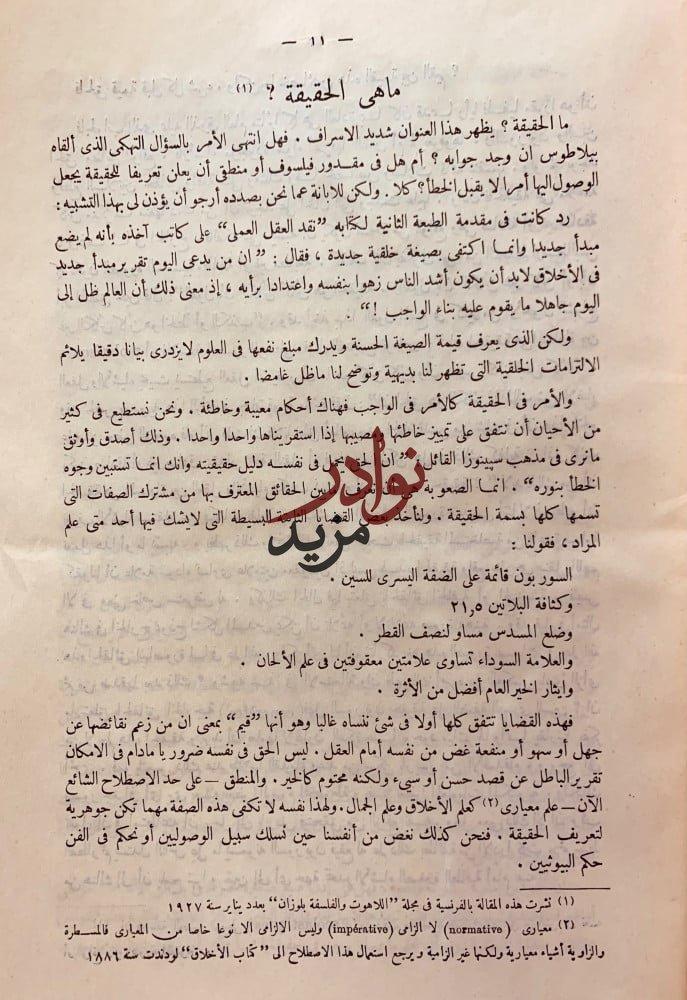 — ١١ —
ماهى الحقيقة ؟ (١)
ما الحقيقة ؟ يظهر هذا العنوان شديد الاسراف . فهل انتهى الأمر بالسؤال التهكمى الذى ألقاه
بيلاطوس ان وجد جوابه ؟ أم هل فى مقدور فيلسوف أو منطقى أن يعلن تعريفا للحقيقة يجعل
الوصول اليها أمرا لا يقبل الخطأ ؟ كلا . ولكن للابانة عما نحن بصدده أرجو أن يؤذن لى بهذا التشبيه :
رد كانت فى مقدمة الطبعة الثانية لكتابه "نقد العقل العملى" على كاتب آخذه بأنه لم يضع
مبدأ جديدا وانما اكتفى بصيغة خلقية جديدة ، فقال : " ان من يدعى اليوم تقرير مبدأ جديد
فى الأخلاق لابد أن يكون أشد الناس زهوا بنفسه واعتدادا برأيه ، إذ معنى ذلك أن العالم ظل إلى
اليوم جاهلا ما يقوم عليه بناء الواجب !" .
ولكن الذى يعرف قيمة الصيغة الحسنة ويدرك مبلغ نفعها فى العلوم لايزدرى بيانا دقيقا يلائم
الالتزامات الخلقية التى تظهر لنا بديهية وتوضح لنا ماظل غامضا .
والأمر فى الحقيقة كالأمر فى الواجب فهناك أحكام معيبة وخاطئة . ونحن نستطيع فى كثير
من الأحيان أن نتفق على تمييز خاطئها ومصيبها إذا استقريناها واحدا واحدا . وذلك أصدق وأوثق
مانرى فى مذهب سپينوزا القائل : " ان الحق يحمل فى نفسه دليل حقيقته وانك انما تستبين وجوه
الخطأ بنوره" . انما الصعوبة هى أن تعرف مابين الحقائق المعترف بها من مشترك الصفات التى
تسمها كلها بسمة الحقيقة . ولنأخذ بعض القضايا البسيطة التى لايشك فيها أحد متى علم
المراد ، فقولنا :
السوربون قائمة على الضفة اليسرى للسين .
وكثافة البلاتين ٢١,٥
وضلع المسدس مساو لنصف القطر .
والعلامة السوداء تساوى علامتين معقوفتين فى علم الألحان .
وايثار الخير العام أفضل من الأثرة .
فهذه القضايا تتفق كلها أولا فى شئ ننساه غالبا وهو أنها "قيم" بمعنى ان من زعم نقائضها عن
جهل أو سهو أو منفعة غض من نفسه أمام العقل . ليس الحق فى نفسه ضروريا مادام فى الامكان
تقرير الباطل عن قصد حسن أو سيىء ولكنه محتوم كالخير . والمنطق — على حد الاصطلاح الشائع
الآن — علم معيارى (٢) كعلم الأخلاق وعلم الجمال . ولهذا نفسه لا تكفى هذه الصفة مهما تكن جوهرية
لتعريف الحقيقة . فنحن كذلك نغض من أنفسنا حين نسلك سبيل الوصوليين أو نحكم فى الفن
حكم البيوثيين .
(١) نشرت هذه المقالة بالفرنسية فى مجلة "اللاهوت والفلسفة بلوزان" بعدد يناير سنة ١٩٢٧
(٢) معيارى (normative) لا الزامى (impérative) وليس الالزامى الا نوعا خاصا من المعيارى فالمسطرة
والزاوية أشياء معيارية ولكنها غير الزامية ويرجع استعمال هذا الاصطلاح الى "كتاب الأخلاق" لوندت سنة ١٨٨٦
نوادر
مزيد